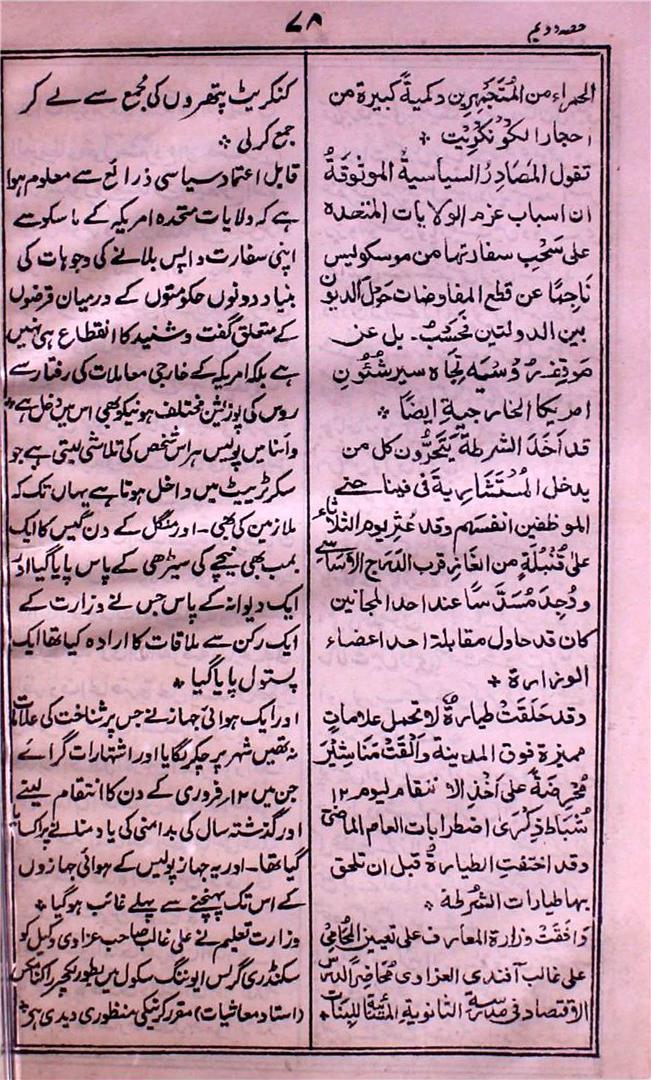 حصہ دویم
۷۸
الحمراء من المُتَجَمْهِرِين وكميةً كبيرة من
احجار الكونكريت ٭
تقول المصادرُ السياسيةُ الموثوقةُ
ان اسباب عزم الولايات المتحدة
على سَحْبِ سفارتها من موسكو ليس
ناجمًا عن قطع المفاوضات حول الديون
بين الدولتين فحَسْبُ۔ بل عن
موقف روسية تجاه سير شئون
امريكا الخارجية ايضًا ٭
قد اَخَذَ الشرطة يَتَحَرَّون كل من
يدخل المُسْتَشارية فى فينا حتى
الموظفين انفسهم وقد عُثِرَ يوم الثلاثاء
على قُنْبُلَةٍ من الغاز قرب الدرج الاساسى
ووُجِدَ مُسَدَّسًا عند احد المجانين
كان قد حاول مقابلة احد اعضاء
الوزارة ٭
وقد حَلَّقَتْ طيارةٌ لا تحمل علاماتٍ
مميزة فوق المدينة واَلْقَتْ مَنَاشِيْرَ
مُحَرِّضَةً على اَخْذِ الانتقام ليوم ۱۲
شُبَاط ذِكْرَى اضطرابات العام الماضى
وقد اختفتِ الطيارةُ قبل ان تلحق
بها طيارات الشُرطة ٭
وَافَقَتْ وزارة المعارف على تعيين المُحَامِى
على غالب آفندى العزاوى مُحَاضِرًا لدَرْسِ
الاقتصاد فى مدرسة الثانوية المسائية للبنات ٭
کنکریٹ پتھروں کی مجمع سے لے کر
جمع کرلی ٭
قابل اعتماد سیاسی ذرائع سے معلوم ہوا
ہے کہ ولایات متحدہ امریکہ کے ماسکو سے
اپنی سفارت واپس بلانے کی وجوہات کی
بنیاد دونوں حکومتوں کے درمیان قرضوں
کے متعلق گفت و شنید کا انقطاع ہی نہیں
ہے بلکہ امریکہ کے خارجی معاملات کی رفتار سے
روس کی پوزیشن مختلف ہونیکو بھی اس میں دخل ہے ٭
وائنا میں پولیس ہر اس شخص کی تلاشی لیتی ہے جو
سکرٹریٹ میں داخل ہوتا ہے یہاں تک کہ
ملازمین کی بھی۔ اور منگل کے دن گیس کا ایک
بمب بھی نیچے کی سیڑھی کے پاس پایا گیا اور
ایک دیوانہ کے پاس جس نے وزارت کے
ایک رکن سے ملاقات کا ارادہ کیا تھا ایک
پستول پایا گیا ٭
اور ایک ہوائی جہاز نے جس پر شناخت کی علامات
نہ تھیں شہر پر چکر لگایا اور اشتہارات گرائے
جن میں ۱۲ر فروری کے دن کا انتقام لینے
اور گذشتہ سال کی بدامنی کی یاد منانے پر اکسایا
گیا تھا۔ اور یہ جہاز پولیس کے ہوائی جہازوں
کے اس تک پہنچنے سے پہلے غائب ہوگیا ٭
وزارت تعلیم نے علی غالب صاحب عزاوی وکیل کو
سکنڈری گرلس ایوننگ سکول میں بطور لکچرر اکنامکس
(استاد معاشیات) مقرر کرنیکی منظوری دیدی ہے ٭